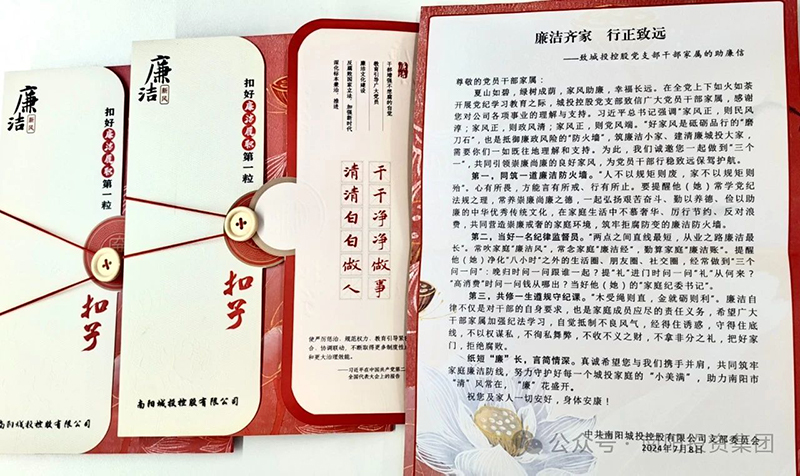 廉洁
新风
扣好廉洁履职第一粒
扣子
南阳城投控股有限公司
廉洁
新风
扣好廉洁履职第一粒
扣子
南阳城投控股有限公司
干部增强不想腐的自觉
教育引导广大党员
廉洁文化建设
反腐败国家立法，加强新时代
深化标本兼治，推进
干干净净做事
清清白白做人
使严厉惩治、规范权力、教育引导紧
合、协调联动，不断取得更多制度性
和更大治理效能。
——习近平在中国共产党第二
全国代表大会上的报告
廉洁齐家 行正致远
——致城投控股党支部干部家属的助廉信
尊敬的党员干部家属：
夏山如碧，绿树成荫，家风助廉，幸福长远。在全党上下如火如荼
开展党纪学习教育之际，城投控股党支部致信广大党员干部家属，感谢
您对公司各项事业的理解与支持。习近平总书记强调“家风正，则民风
淳；家风正，则政风清；家风正，则党风端。”好家风是砥砺品行的“磨
刀石”，也是抵御廉政风险的“防火墙”，筑廉洁小家、建清廉城投大家，
需要你们一如既往地理解和支持。为此，我们诚邀您一起做到“三个
一”，共同引领崇廉尚廉的良好家风，为党员干部行稳致远保驾护航。
第一，同筑一道廉洁防火墙。“人不以规矩则废，家不以规矩则
殆”。心有所畏，方能言有所戒、行有所止。要提醒他（她）常学党纪
法规之理，常养崇廉尚廉之德，一起弘扬艰苦奋斗、勤以养德、俭以助
廉的中华优秀传统文化，在家庭生活中不慕奢华、厉行节约、反对浪
费，共同营造崇廉戒奢的家庭环境，筑牢拒腐防变的廉洁防火墙。
第二，当好一名纪律监督员。“两点之间直线最短，从业之路廉洁最
长”。常吹家庭“廉洁风”，常念家庭“廉洁经”，勤算家庭“廉洁账”。提醒
他（她）净化“八小时”之外的生活圈、朋友圈、社交圈，经常做到“三个
问一问”：晚归时问一问跟谁一起？提“礼”进门时问一问“礼”从何来？
“高消费”时问一问钱从哪出？当好他（她）的“家庭纪委书记”。
第三，共修一生遵规守纪课。“木受绳则直，金就砺则利”。廉洁自
律不仅是对干部的自身要求，也是家庭成员应尽的责任义务，希望广大
干部家属加强纪法学习，自觉抵制不良风气，经得住诱惑，守得住底
线，不以权谋私，不徇私舞弊，不收不义之财，不拿非分之礼，把好家
门，拒绝腐败。
纸短“廉”长，言简情深。真诚希望您与我们携手并肩，共同筑牢
家庭廉洁防线，努力守护好每一个城投家庭的“小美满”，助力南阳市
“清”风常在，“廉”花盛开。
祝您及家人一切安好，身体安康！
中共南阳城投控股有限公司支部委员会
2024年7月8日
公众号·投资集团